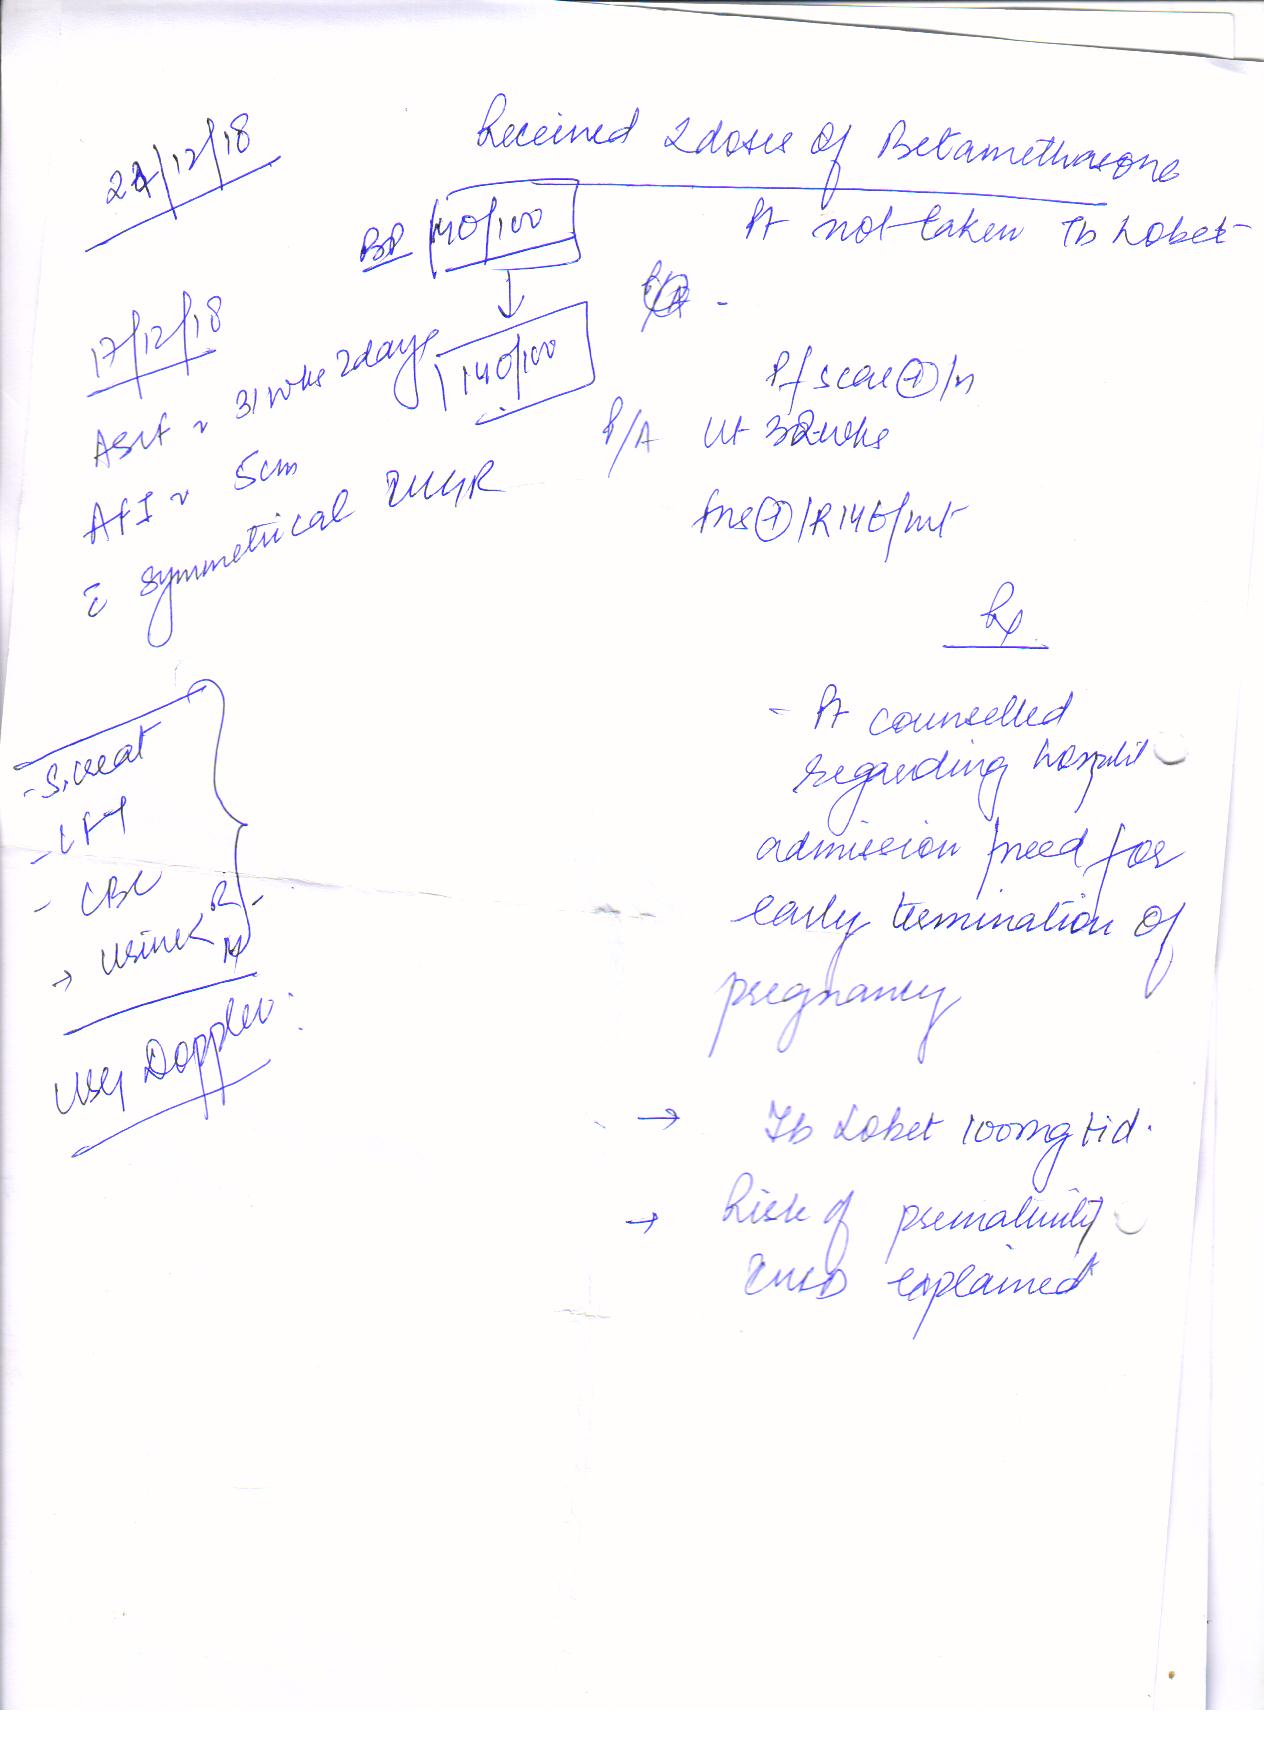 24/12/18
Received 2 doses of Betamethasone
BP 140/100
Pt not taken Tb Lobet
↓
140/100
P/A -
17/12/18
ASUA ~ 31 wks 2 days
AFI ~ 5cm
c̄ symmetrical IUGR
Pf scar ⊕/n
P/A Ut 32 wks
FHS ⊕/R 146/mt
Rx
- Pt counselled
regarding hospital
admission / need for
early termination of
pregnancy
- S. creat
- LFT
- CBC
→ Urine < R
M
USG Doppler
→ Tb Lobet 100mg tid.
→ Risk of prematurity
IUD explained